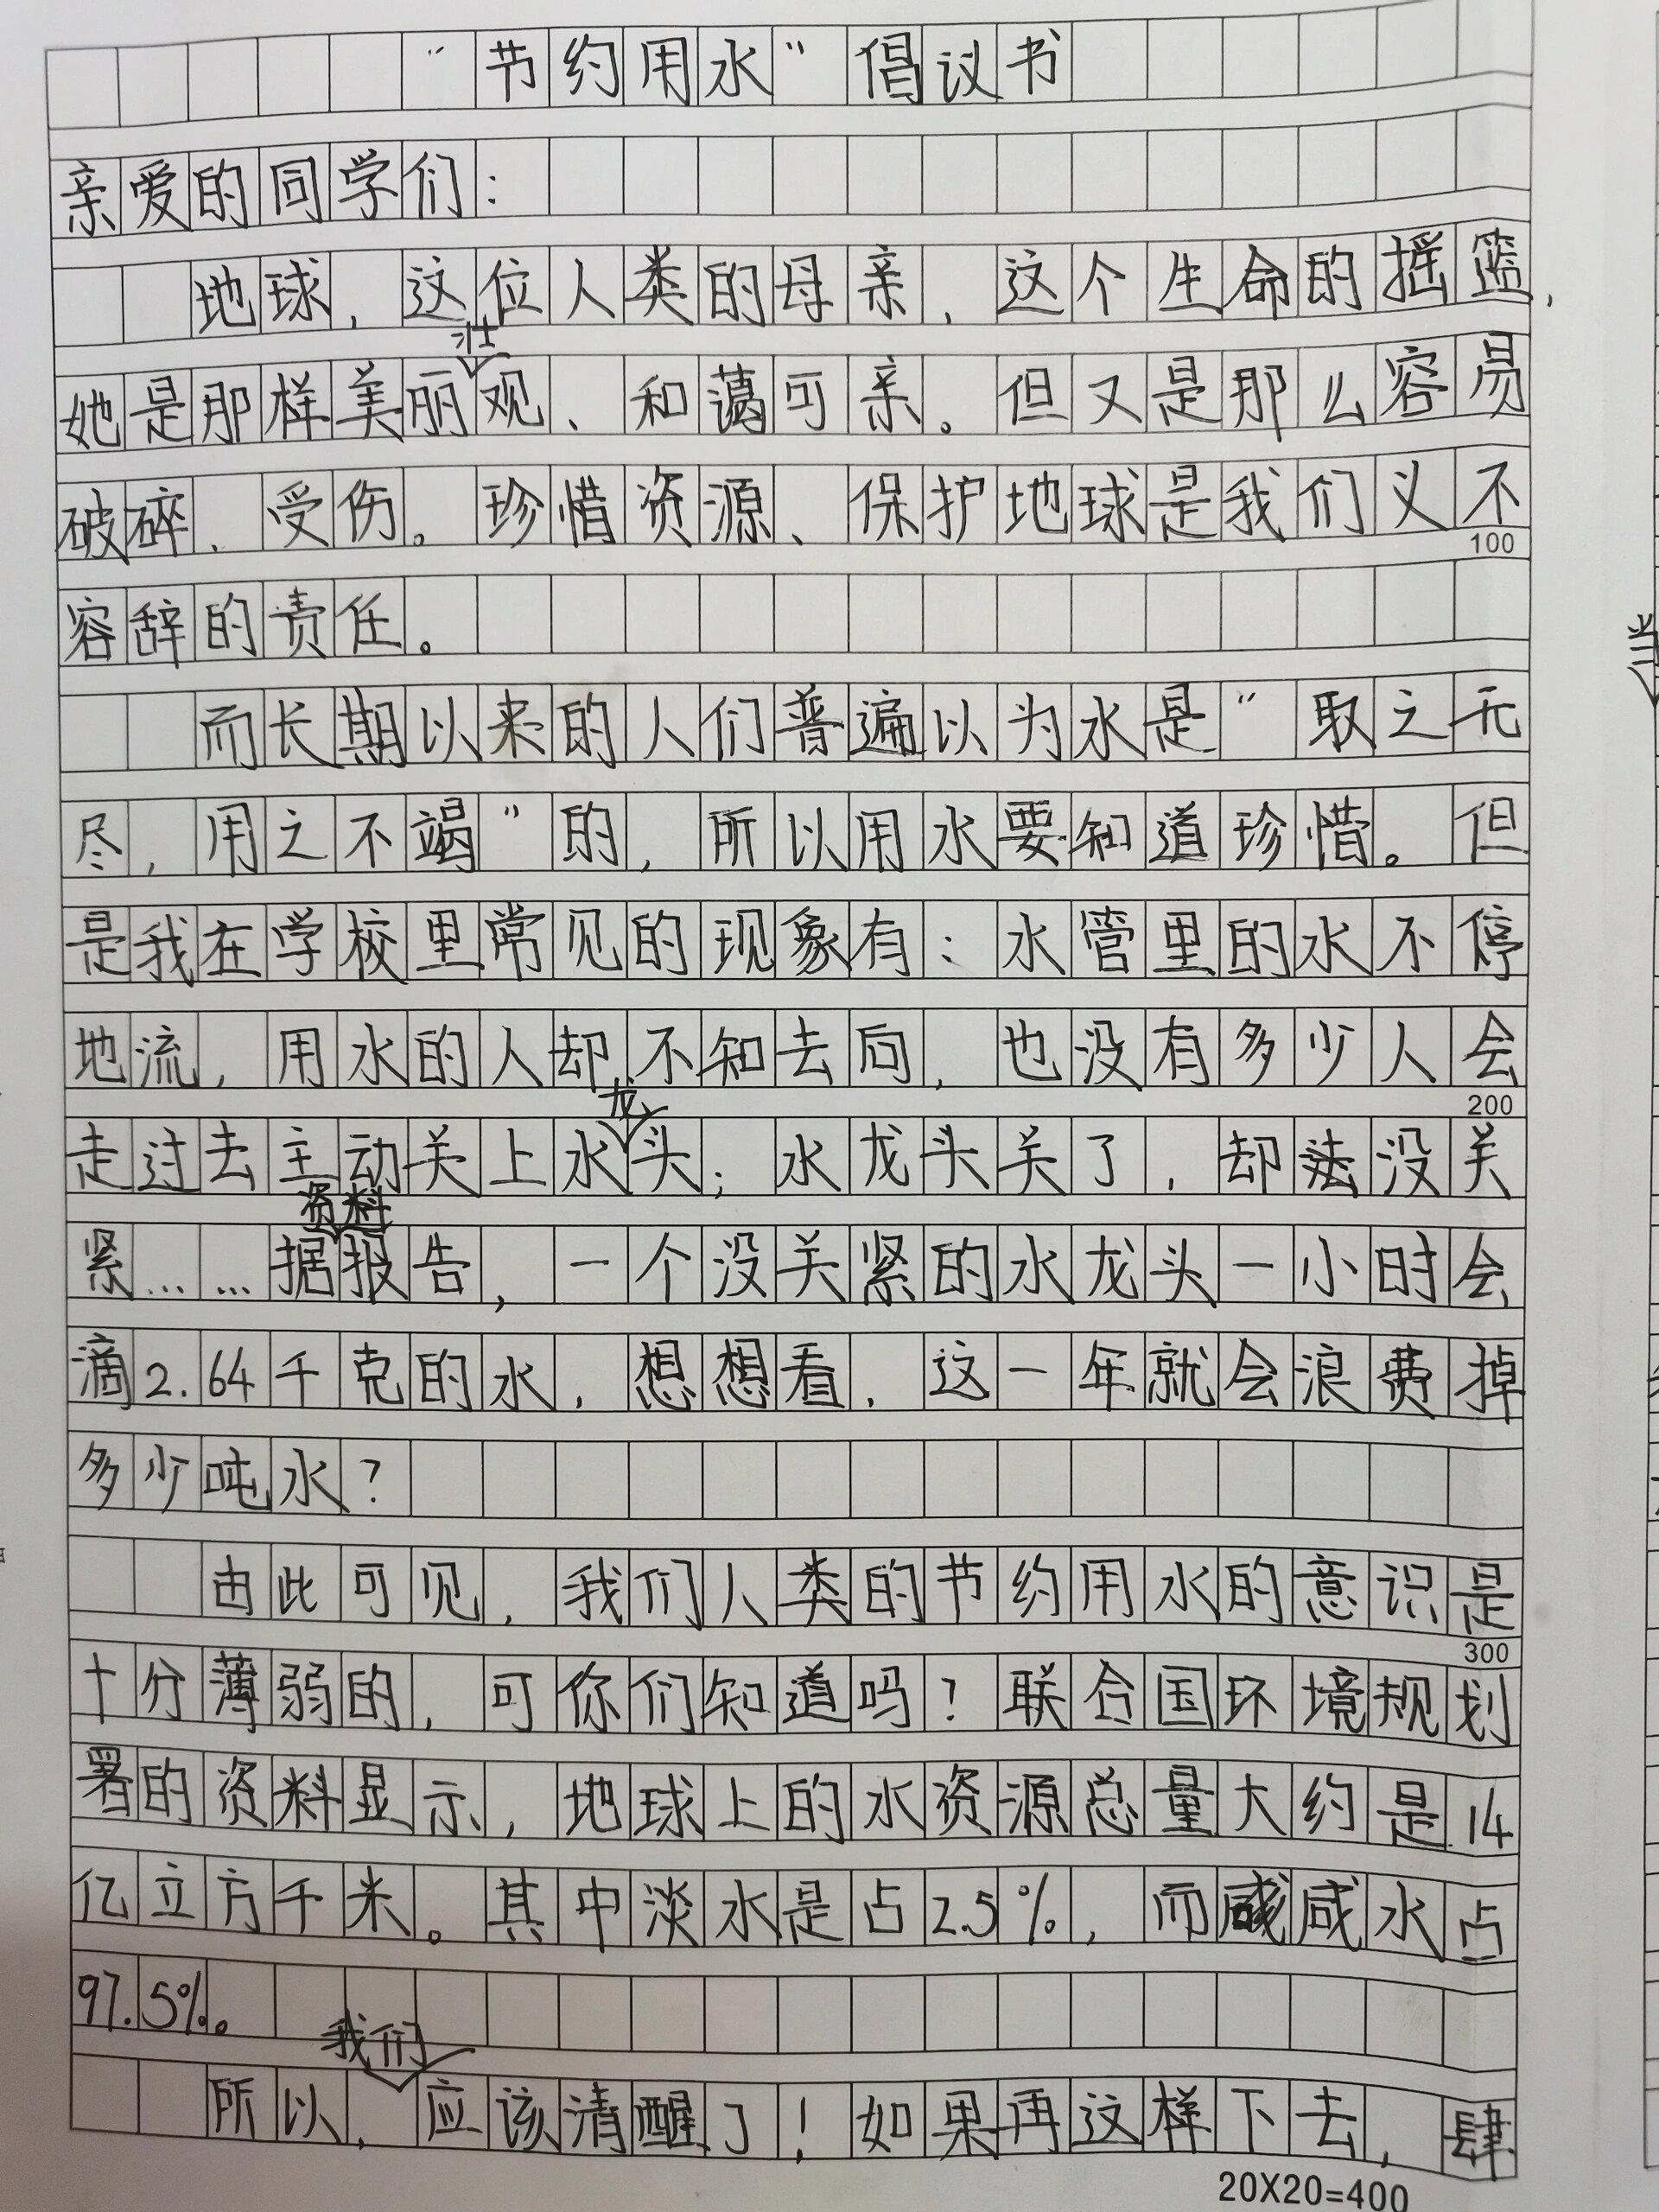 “节约用水”倡议书
亲爱的同学们：
地球，这位人类的母亲，这个生命的摇篮，
她是那样美丽壮观、和蔼可亲。但又是那么容易
破碎、受伤。珍惜资源、保护地球是我们义不
100
容辞的责任。
而长期以来的人们普遍以为水是“取之无
尽，用之不竭”的，所以用水要知道珍惜。但
是我在学校里常见的现象有：水管里的水不停
地流，用水的人却不知去向，也没有多少人会
200
走过去主动关上水龙头；水龙头关了，却没关
紧……据资料报告，一个没关紧的水龙头一小时会
滴2.64千克的水，想想看，这一年就会浪费掉
多少吨水？
由此可见，我们人类的节约用水的意识是
300
十分薄弱的，可你们知道吗？联合国环境规划
署的资料显示，地球上的水资源总量大约是14
亿立方千米。其中淡水是占2.5%，而咸水占
97.5%。
所以，我们应该清醒了！如果再这样下去，肆
20X20=400
当